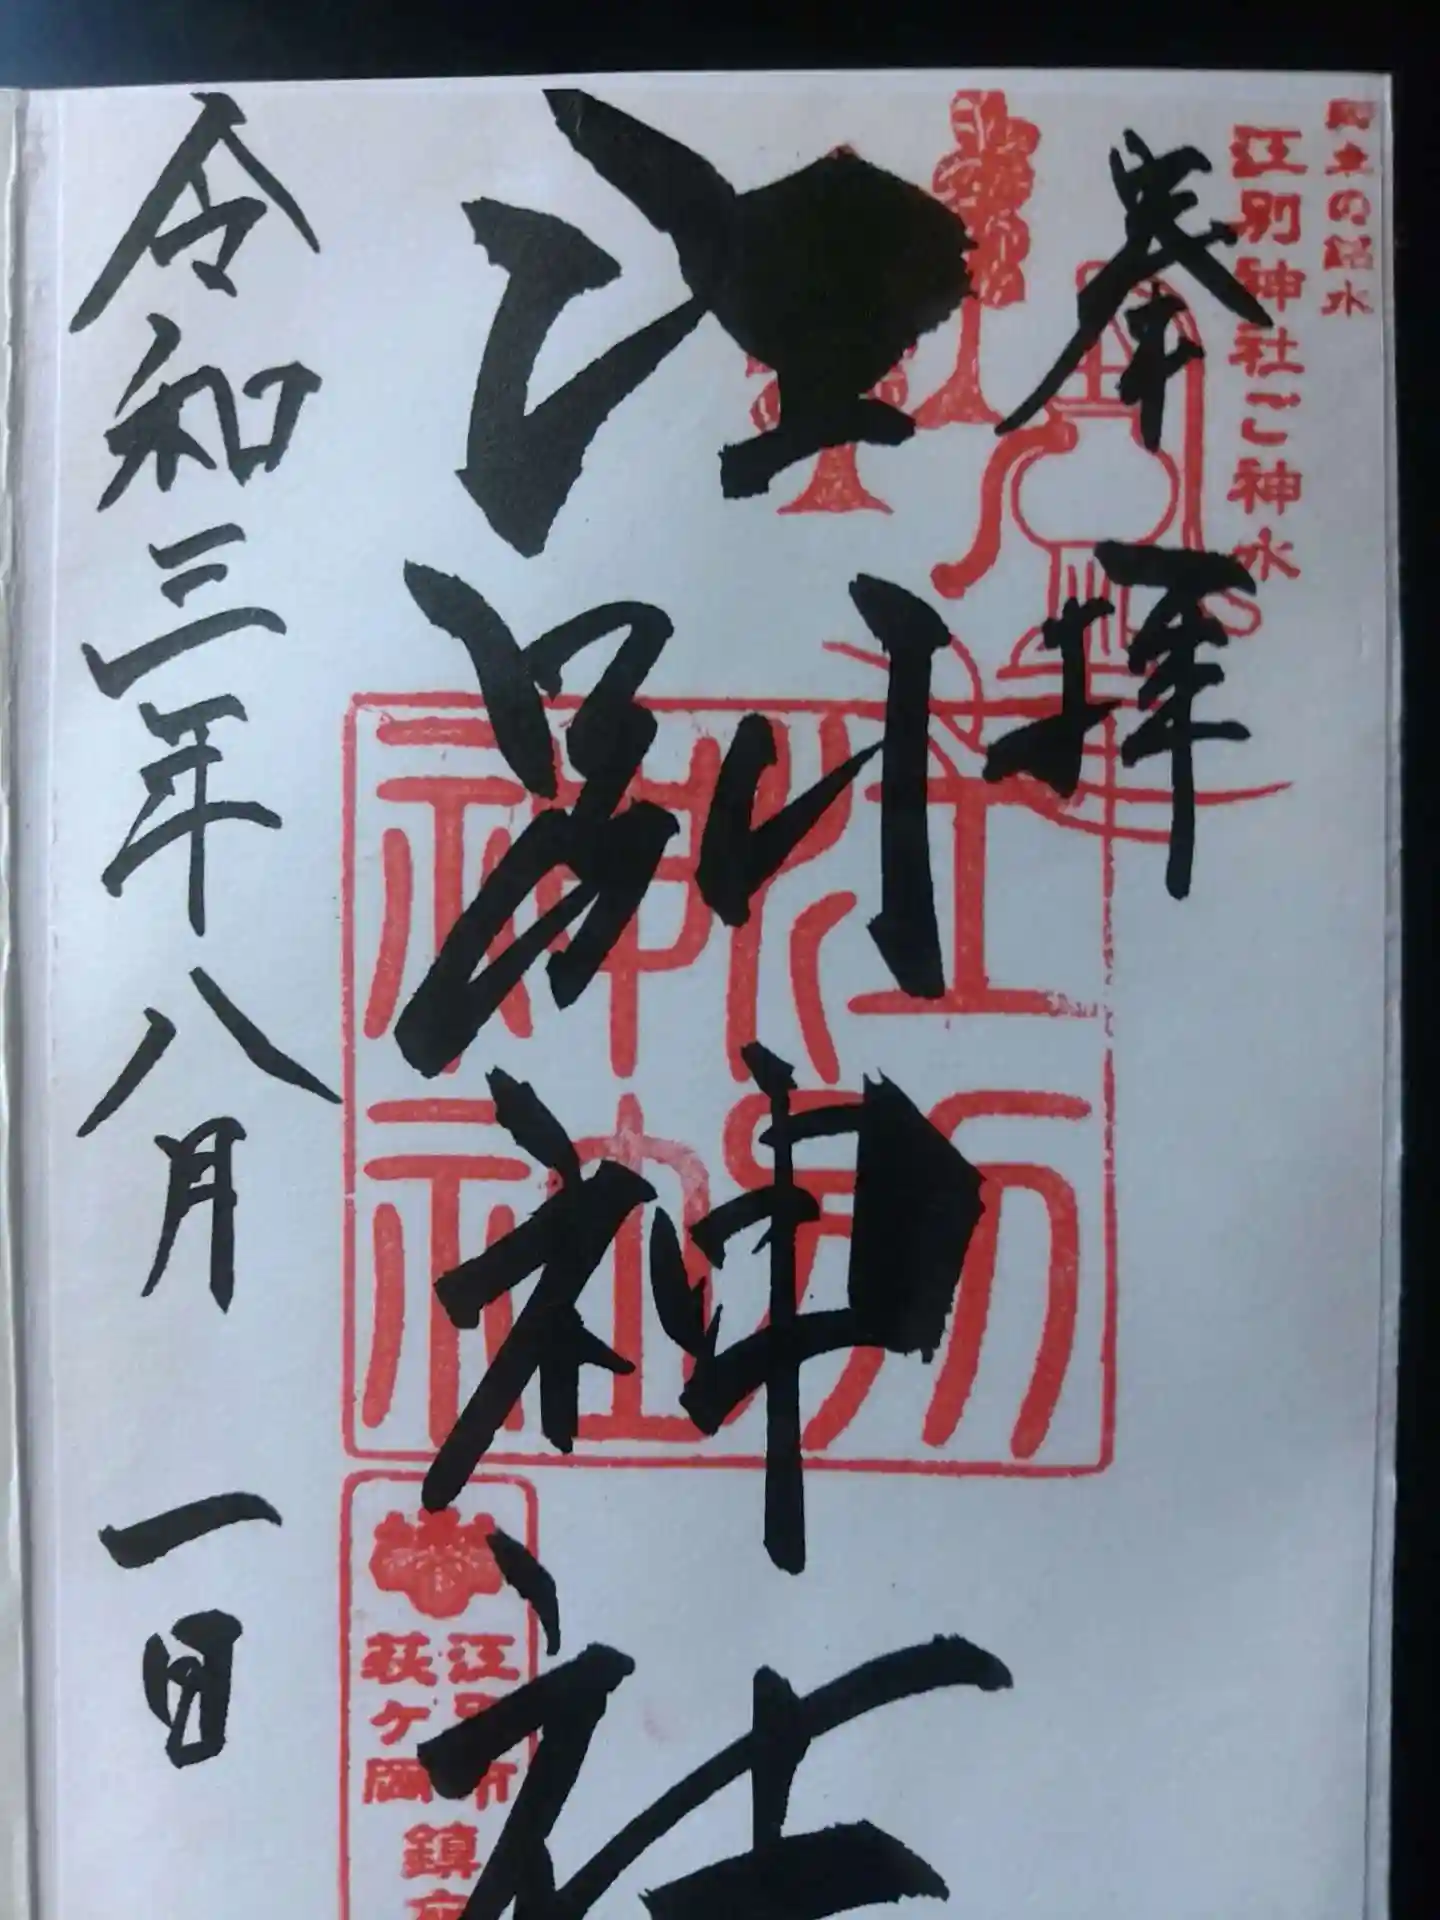 郷土の銘水
江別神社ご神水
奉拝
江別神社
江別神社
江別市
萩ヶ岡
鎮
令和三年八月一日